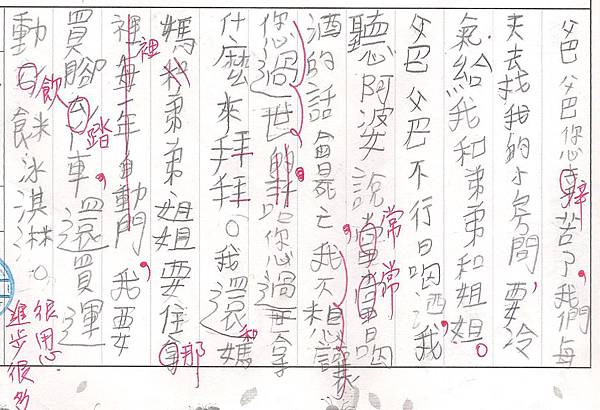 爸爸您辛苦了,我們每
天去找我的小房間,要冷
氣給我和弟弟和姐姐。
爸爸不行喝酒,我
聽阿婆說,常常喝
酒的話會死亡我不想讓
您過世的話您過世拿
什麼來拜拜。我還和媽
媽和弟弟姐姐要住那
裡每一年自動門,我要
買腳踏車,還買運
動飲冰淇淋。
很用心
進步很多